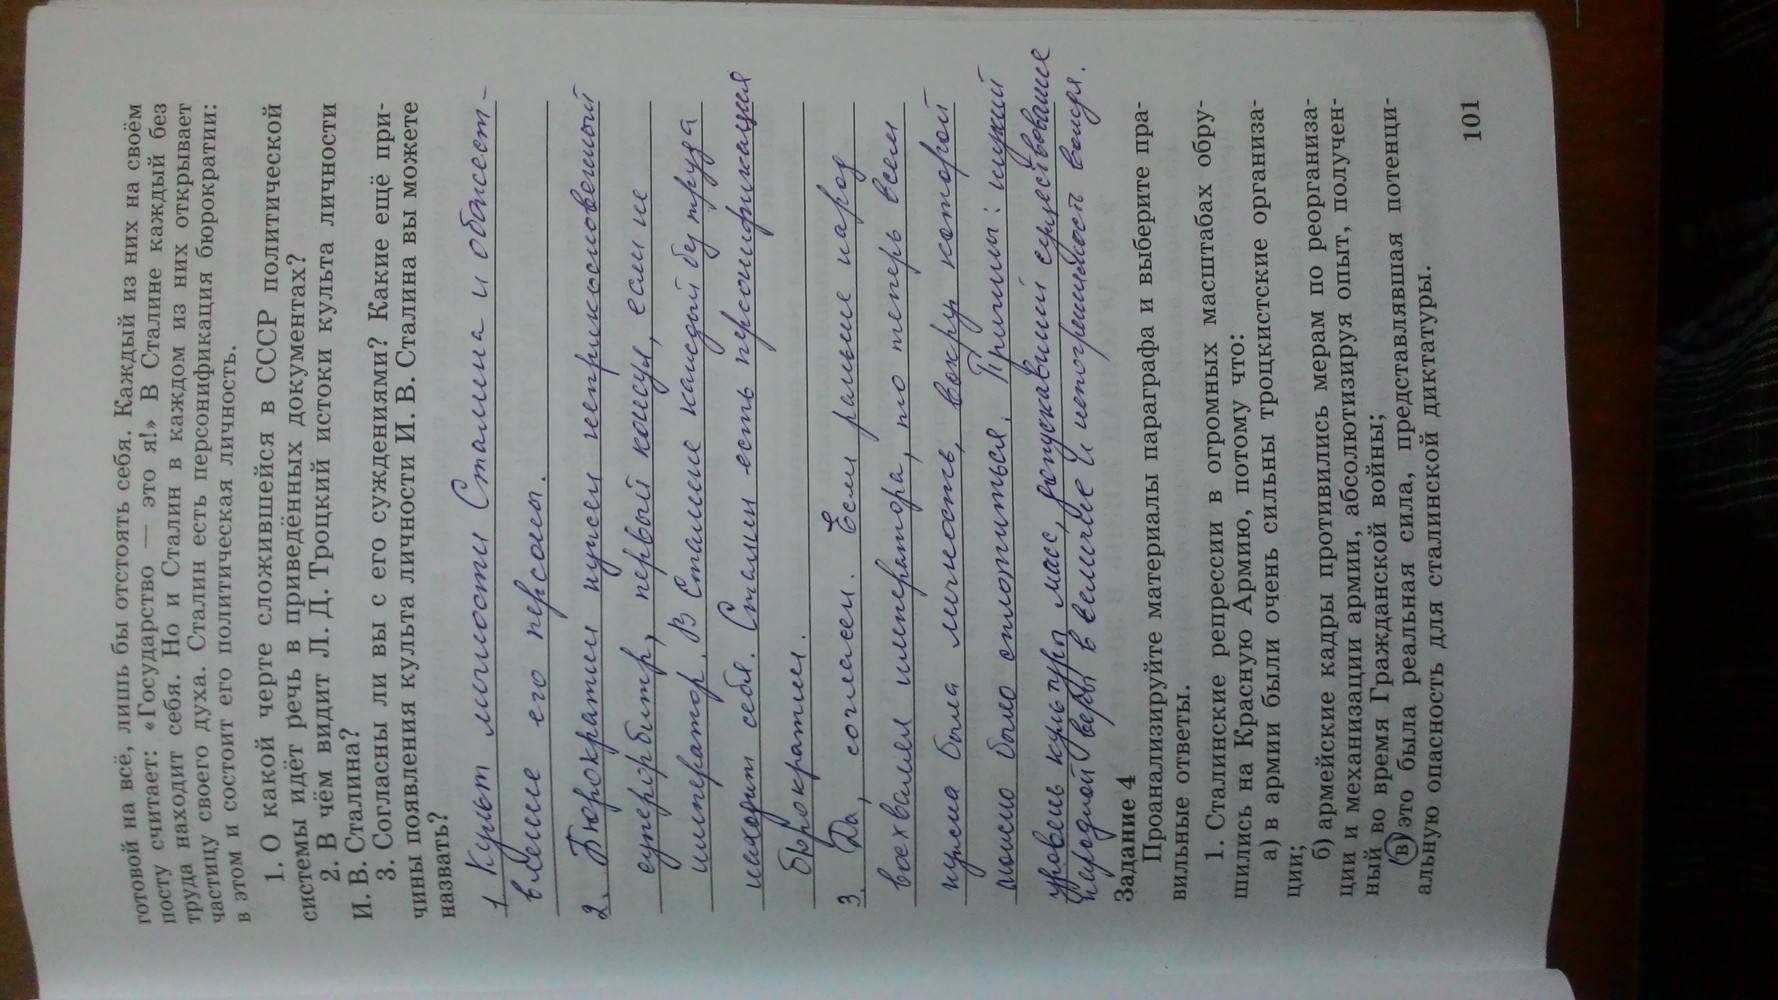 готовой на всё, лишь бы отстоять себя. Каждый из них на своём
посту считает: «Государство — это я!» В Сталине каждый без
труда находит себя. Но и Сталин в каждом из них открывает
частицу своего духа. Сталин есть персонификация бюрократии:
в этом и состоит его политическая личность.
1. О какой черте сложившейся в СССР политической
системы идёт речь в приведённых документах?
2. В чём видит Л. Д. Троцкий истоки культа личности
И. В. Сталина?
3. Согласны ли вы с его суждениями? Какие ещё при-
чины появления культа личности И. В. Сталина вы можете
назвать?
1 Культ личности Сталина и обожест-
вление его персоны.
2. Бюрократии нужен неприкосновенный
суперорбитр, первый консул, если не
император. В Сталине каждый бу труда
находит себя. Сталин есть персонификация
бюрократии.
3. Да, согласен. Если раньше народ
восхвалял императора, то теперь всем
нужна была личность, вокруг которой
можно было сплотиться. Причины: низкий
уровень культуры масс, допускавший существование
народной веры в величие и непогрешимость вождя.
Задание 4
Проанализируйте материалы параграфа и выберите пра-
вильные ответы.
1. Сталинские репрессии в огромных масштабах обру-
шились на Красную Армию, потому что:
а) в армии были очень сильны троцкистские организа-
ции;
б) армейские кадры противились мерам по реорганиза-
ции и механизации армии, абсолютизируя опыт, получен-
ный во время Гражданской войны;
в) это была реальная сила, представлявшая потенци-
альную опасность для сталинской диктатуры.
101